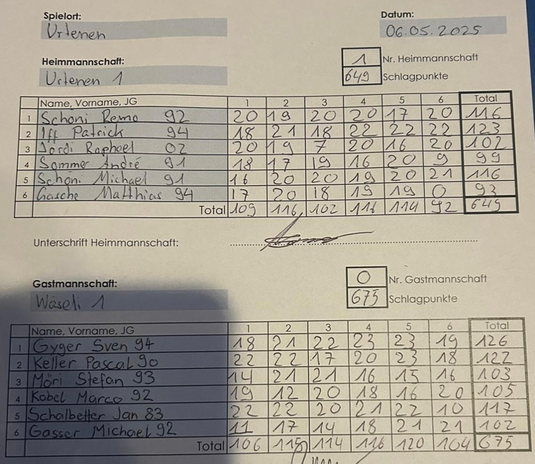 Spielort:
Urtenen
Datum:
06.05.2025
Heimmannschaft:
Urtenen 1
1 Nr. Heimmannschaft
649 Schlagpunkte
Name, Vorname, JG 1 2 3 4 5 6 Total
1 Schöni Remo 92 20 19 20 20 17 20 116
2 Iff Patrick 94 18 21 18 22 22 22 123
3 Jordi Raphael 02 20 19 7 20 16 20 102
4 Sommer André 91 18 17 19 16 20 9 99
5 Schöni Michael 91 16 20 20 19 20 21 116
6 Gasche Matthias 94 17 20 18 19 19 0 93
Total 109 116 102 116 114 92 649
Unterschrift Heimmannschaft:
Gastmannschaft:
Wäseli 1
0 Nr. Gastmannschaft
675 Schlagpunkte
Name, Vorname, JG 1 2 3 4 5 6 Total
1 Gyger Sven 94 18 21 22 23 23 19 126
2 Keller Pascal 90 22 22 17 20 23 18 122
3 Möri Stefan 93 14 21 21 16 15 16 103
4 Kobel Marco 92 19 12 20 18 16 20 105
5 Schalbetter Jan 83 22 22 20 21 22 10 117
6 Gasser Michael 92 11 17 14 18 21 21 102
Total 106 115 114 116 120 104 675